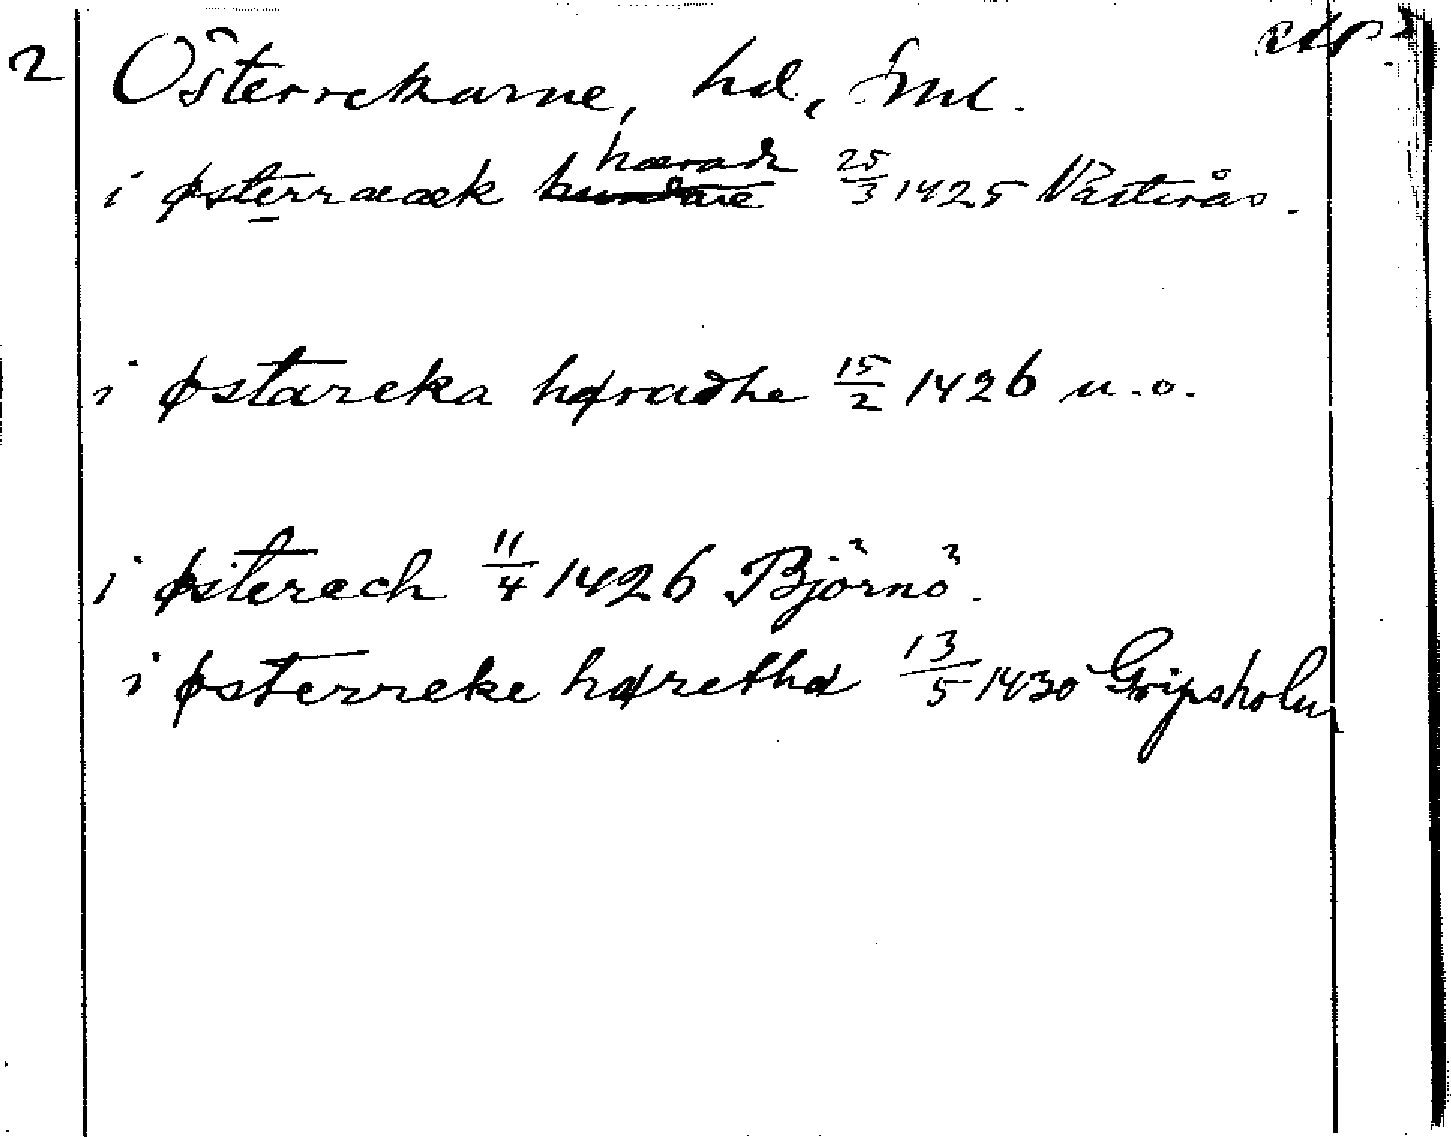 2 Österrekarne, hd, Sml.
hæradh
i østerræææk hundare 25/3 1425 Västerås.
i østareka høradhe 15/2 1426 u.o.
i østerech 11/4 1426 Björnö.
i østerreke hørethø 13/5 1430 Gripsholm